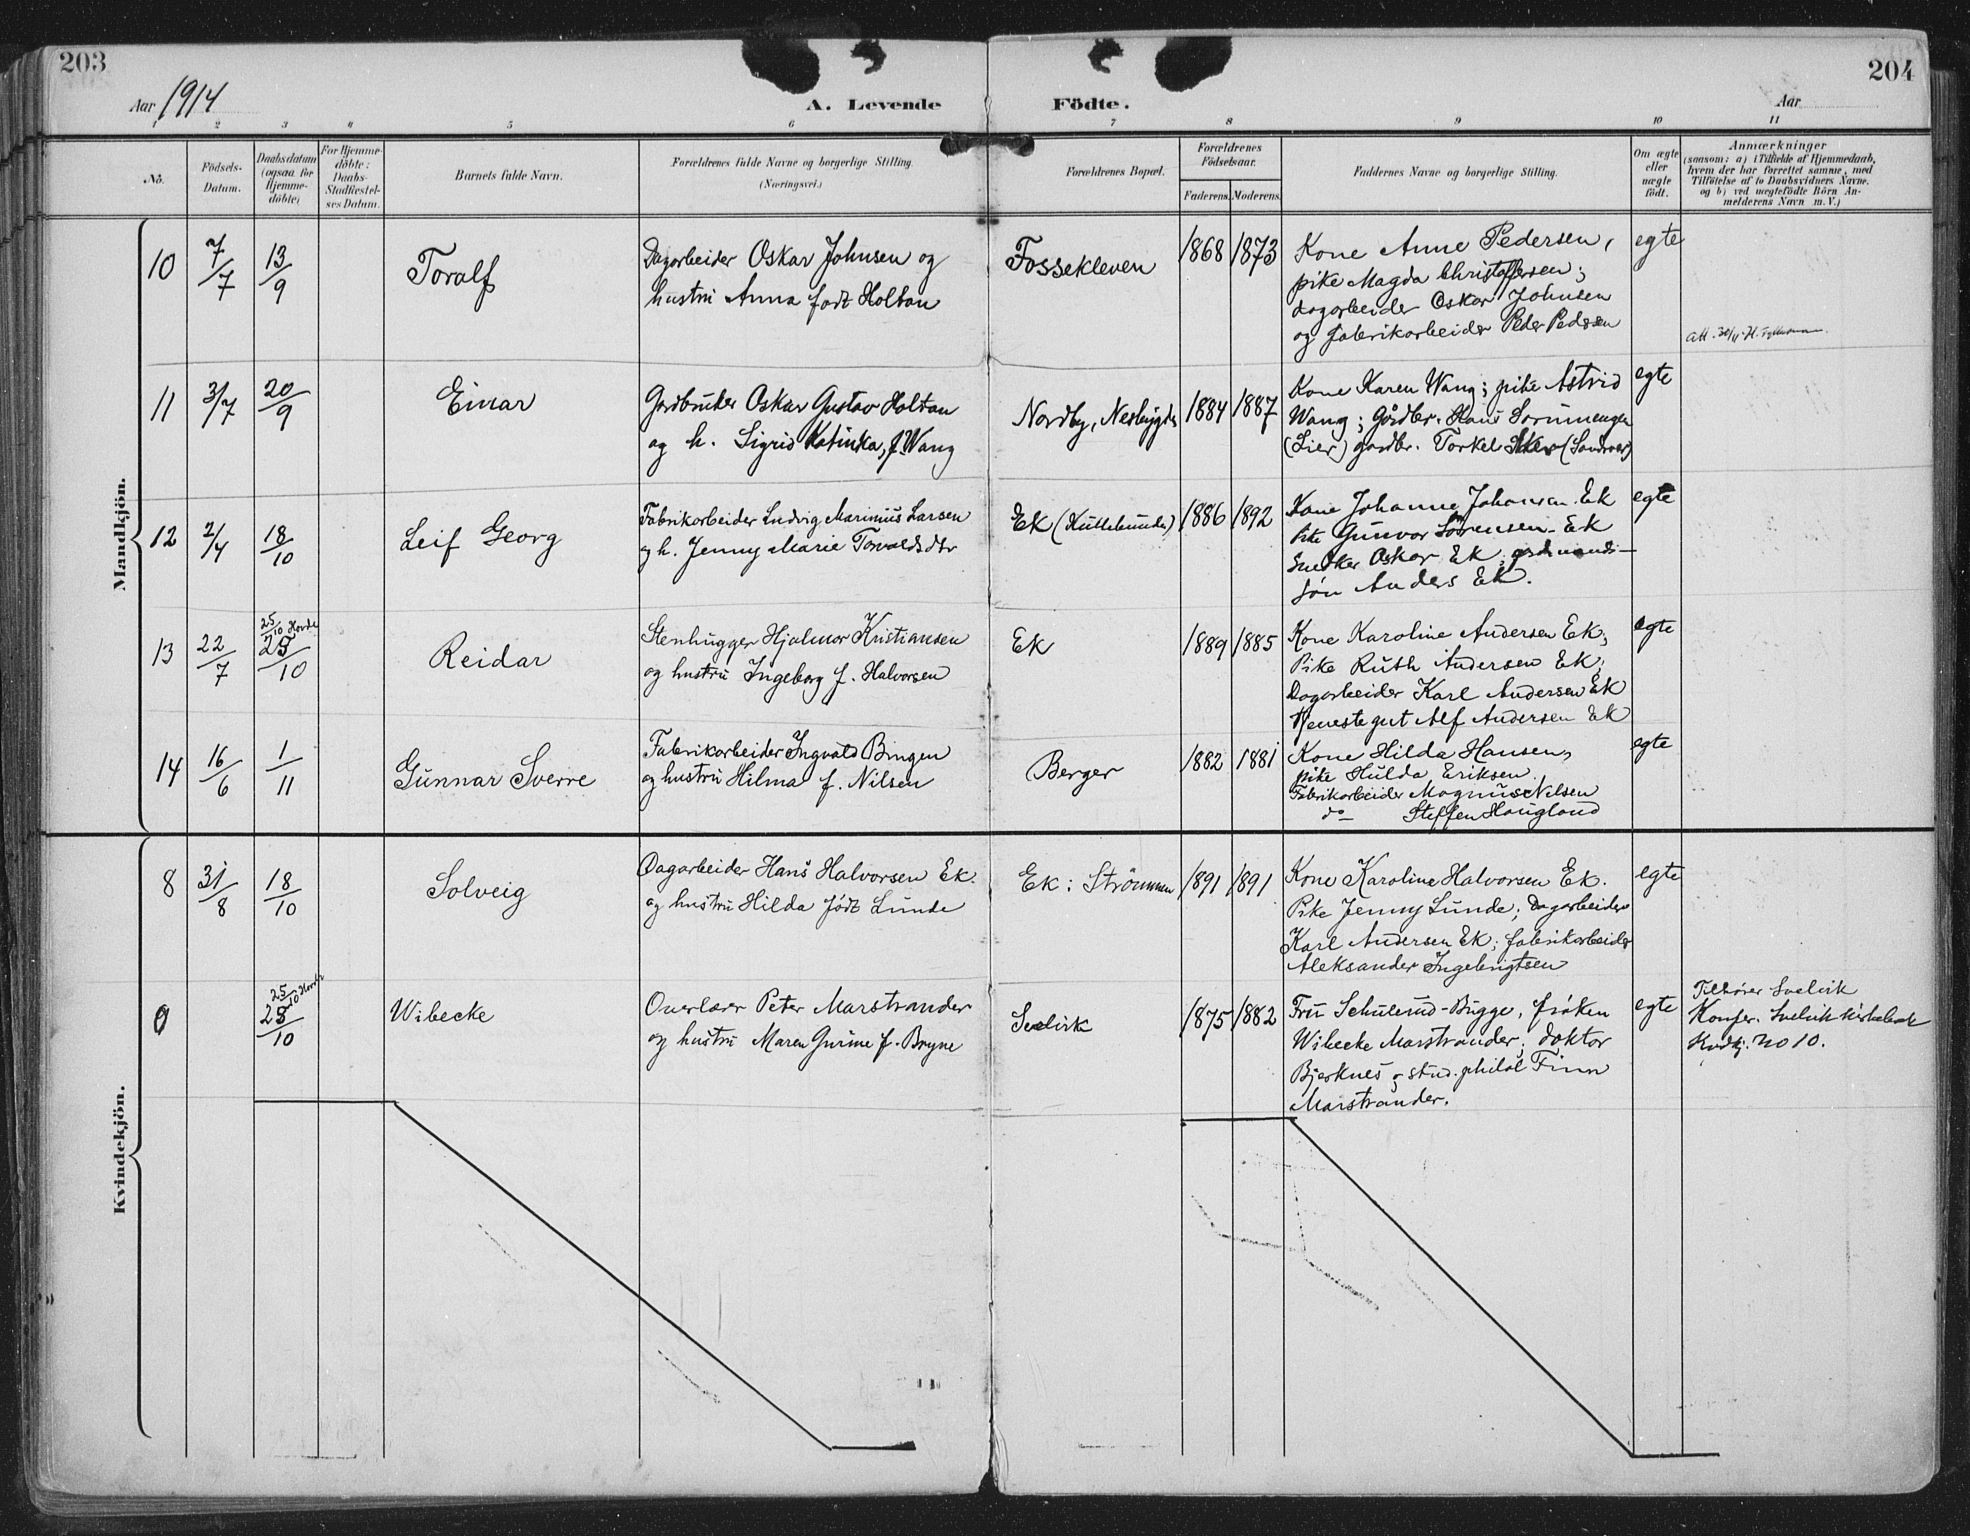 203
204
Aar 1914
A. Levende Födte.
Aar
1 2 3 4 5 6 7 8 9 10 11
No.
Födsels-Datum.
Daabsdatum (ogsaa for Hjemme-döbte)
For Hjemme-döbte: Daabs-Stadfæstel-ses Datum.
Barnets fulde Navn.
Forældrenes fulde Navne og borgerlige Stilling.
(Næringsvei.)
Forældrenes Bopæl.
Forældrenes Födselsaar.
Faderens. Moderens.
Faddernes Navne og borgerlige Stilling.
Om ægte eller uægte födt.
Anmærkninger
(saasom: a) i Tilfælde af Hjemmedaab,
hvem der har forrettet samme, med
Tilföielse af to Daabsvidners Navne.
og b) ved uægtefödte Börn An-
melderens Navn m. V.)
Mandkjön.
10 7/7 13/9 Toralf
Dagarbeider Oskar Johnsen og
hustru Anna født Holtan
Fossekleven 1868 1873
Kone Anne Pedersen,
pike Magda Christoffersen;
dagarbeider Oskar Johnsen
og fabrikarbeider Peder Pedersen
egte
11 3/7 20/9 Einar
Gardbruker Oskar Gustav Holtan
og h. Sigrid Katinka, f. Wang
Nordby, Nesbygda 1884 1887
Kone Karen Wang; pike Astrid
Wang; Gårdbr. Hans
(Lier) gardbr. Torkel
egte
12 2/4 18/10 Leif Georg
Fabrikarbeider Ludvig Marinius Larsen
og h. Jenny Marie Torvaldsdtr
Ek 1886 1892
Kone Johanne Johansen Ek
Pike Gunvor Sørensen Ek
Snedker Oskar Ek;
søn Anders Ek.
egte
13 22/7 25/10 Reidar
25/10
Stenhugger Hjalmar Kristiansen
og hustru Ingeborg f. Halvorsen
Ek 1889 1885
Kone Karoline Andersen Ek;
Pike Ruth Andersen Ek;
Dagarbeider Karl Andersen Ek
Tjenestegut Alf Andersen Ek
egte
14 16/6 1/11 Gunnar Sverre
Fabrikarbeider Ingvald Bingen
og hustru Hilma f. Nilsen
Berger 1882 1881
Kone Hilda Hansen,
pike Hulda Eriksen.
Fabrikarbeider Magnus Nilsen
do Steffen Haugland
egte
Kvindekjön.
8 31/8 18/10 Solveig
Dagarbeider Hans Halvorsen Ek.
og hustru Hilda født Lunde
Ek: Strömmen 1891 1891
Kone Karoline Halvorsen Ek.
Pike Jenny Lunde; Dagarbeider
Karl Andersen Ek; fabrikarbeider
Aleksander Ingebrigtsen
egte
25/10
25/10 Wibecke
Overlærer Peter Marstrander
og hustru Maren Gurine f. Bryne
Svelvik 1875 1882
Fru Schulerud-Bugge, frøken
Wibecke Marstrander; doktor
Bjerknes og stud. philol Finn
Marstrander.
egte
Tilhører Svelvik
Konfer. Svelvik kirkebok
Kvdkj. No 10.